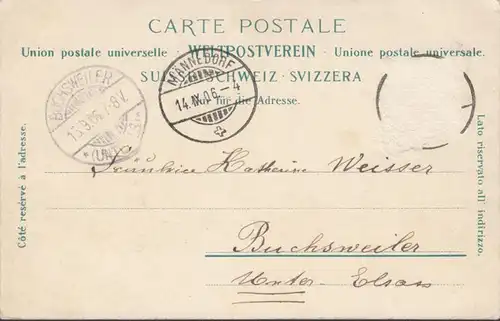 CARTE POSTALE
Union postale universelle - WELTPOSTVEREIN - Unione postale universale.
SUISSE SCHWEIZ SVIZZERA
Nur für die Adresse.
BUCHSWEILER
MÄNNEDORF
14.IX.06.-4
Côté réservé à l'adresse.
Lato riservato all' indirizzo.
Katharine Weisser
Buchsweiler
Unter-Elsass